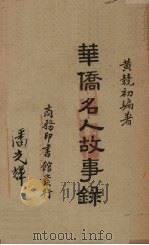 黄競初編著
華僑名人故事錄
商務印書館發行
潘光輝